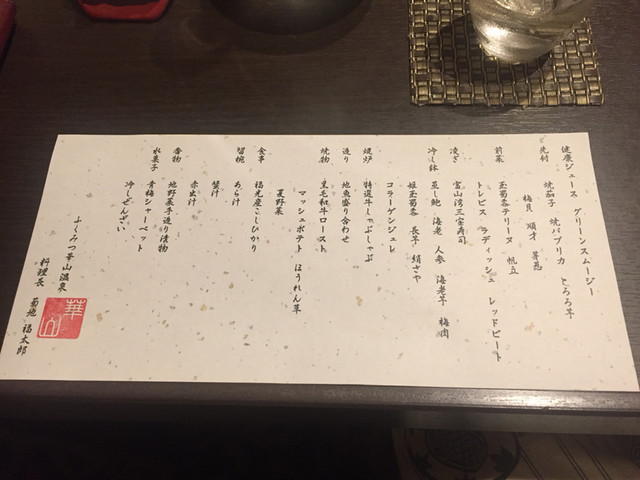 健康ジュース グリーンスムージー
先付 焼茄子 焼パプリカ とろろ芋
梅貝 順才 芽葱
前菜 玉蜀黍テリーヌ 帆立
トレビス ラディッシュ レッドビート
凌ぎ 富山湾三宝寿司
冷し鉢 蒸し鮑 海老 人参 海老芋 梅肉
姫玉蜀黍 長芋 絹さや
コラーゲンジュレ
焜炉 特選牛しゃぶしゃぶ
造り 地魚盛り合わせ
焼物 黒毛和牛ロースト
マッシュポテト ほうれん草
夏野菜
食事 福光産こしひかり
留椀 あら汁
蟹汁
赤出汁
香物 地野菜手造り漬物
水菓子 青梅シャーベット
冷しぜんざい
ふくみつ華山温泉
料理長 菊地 福太郎
華山